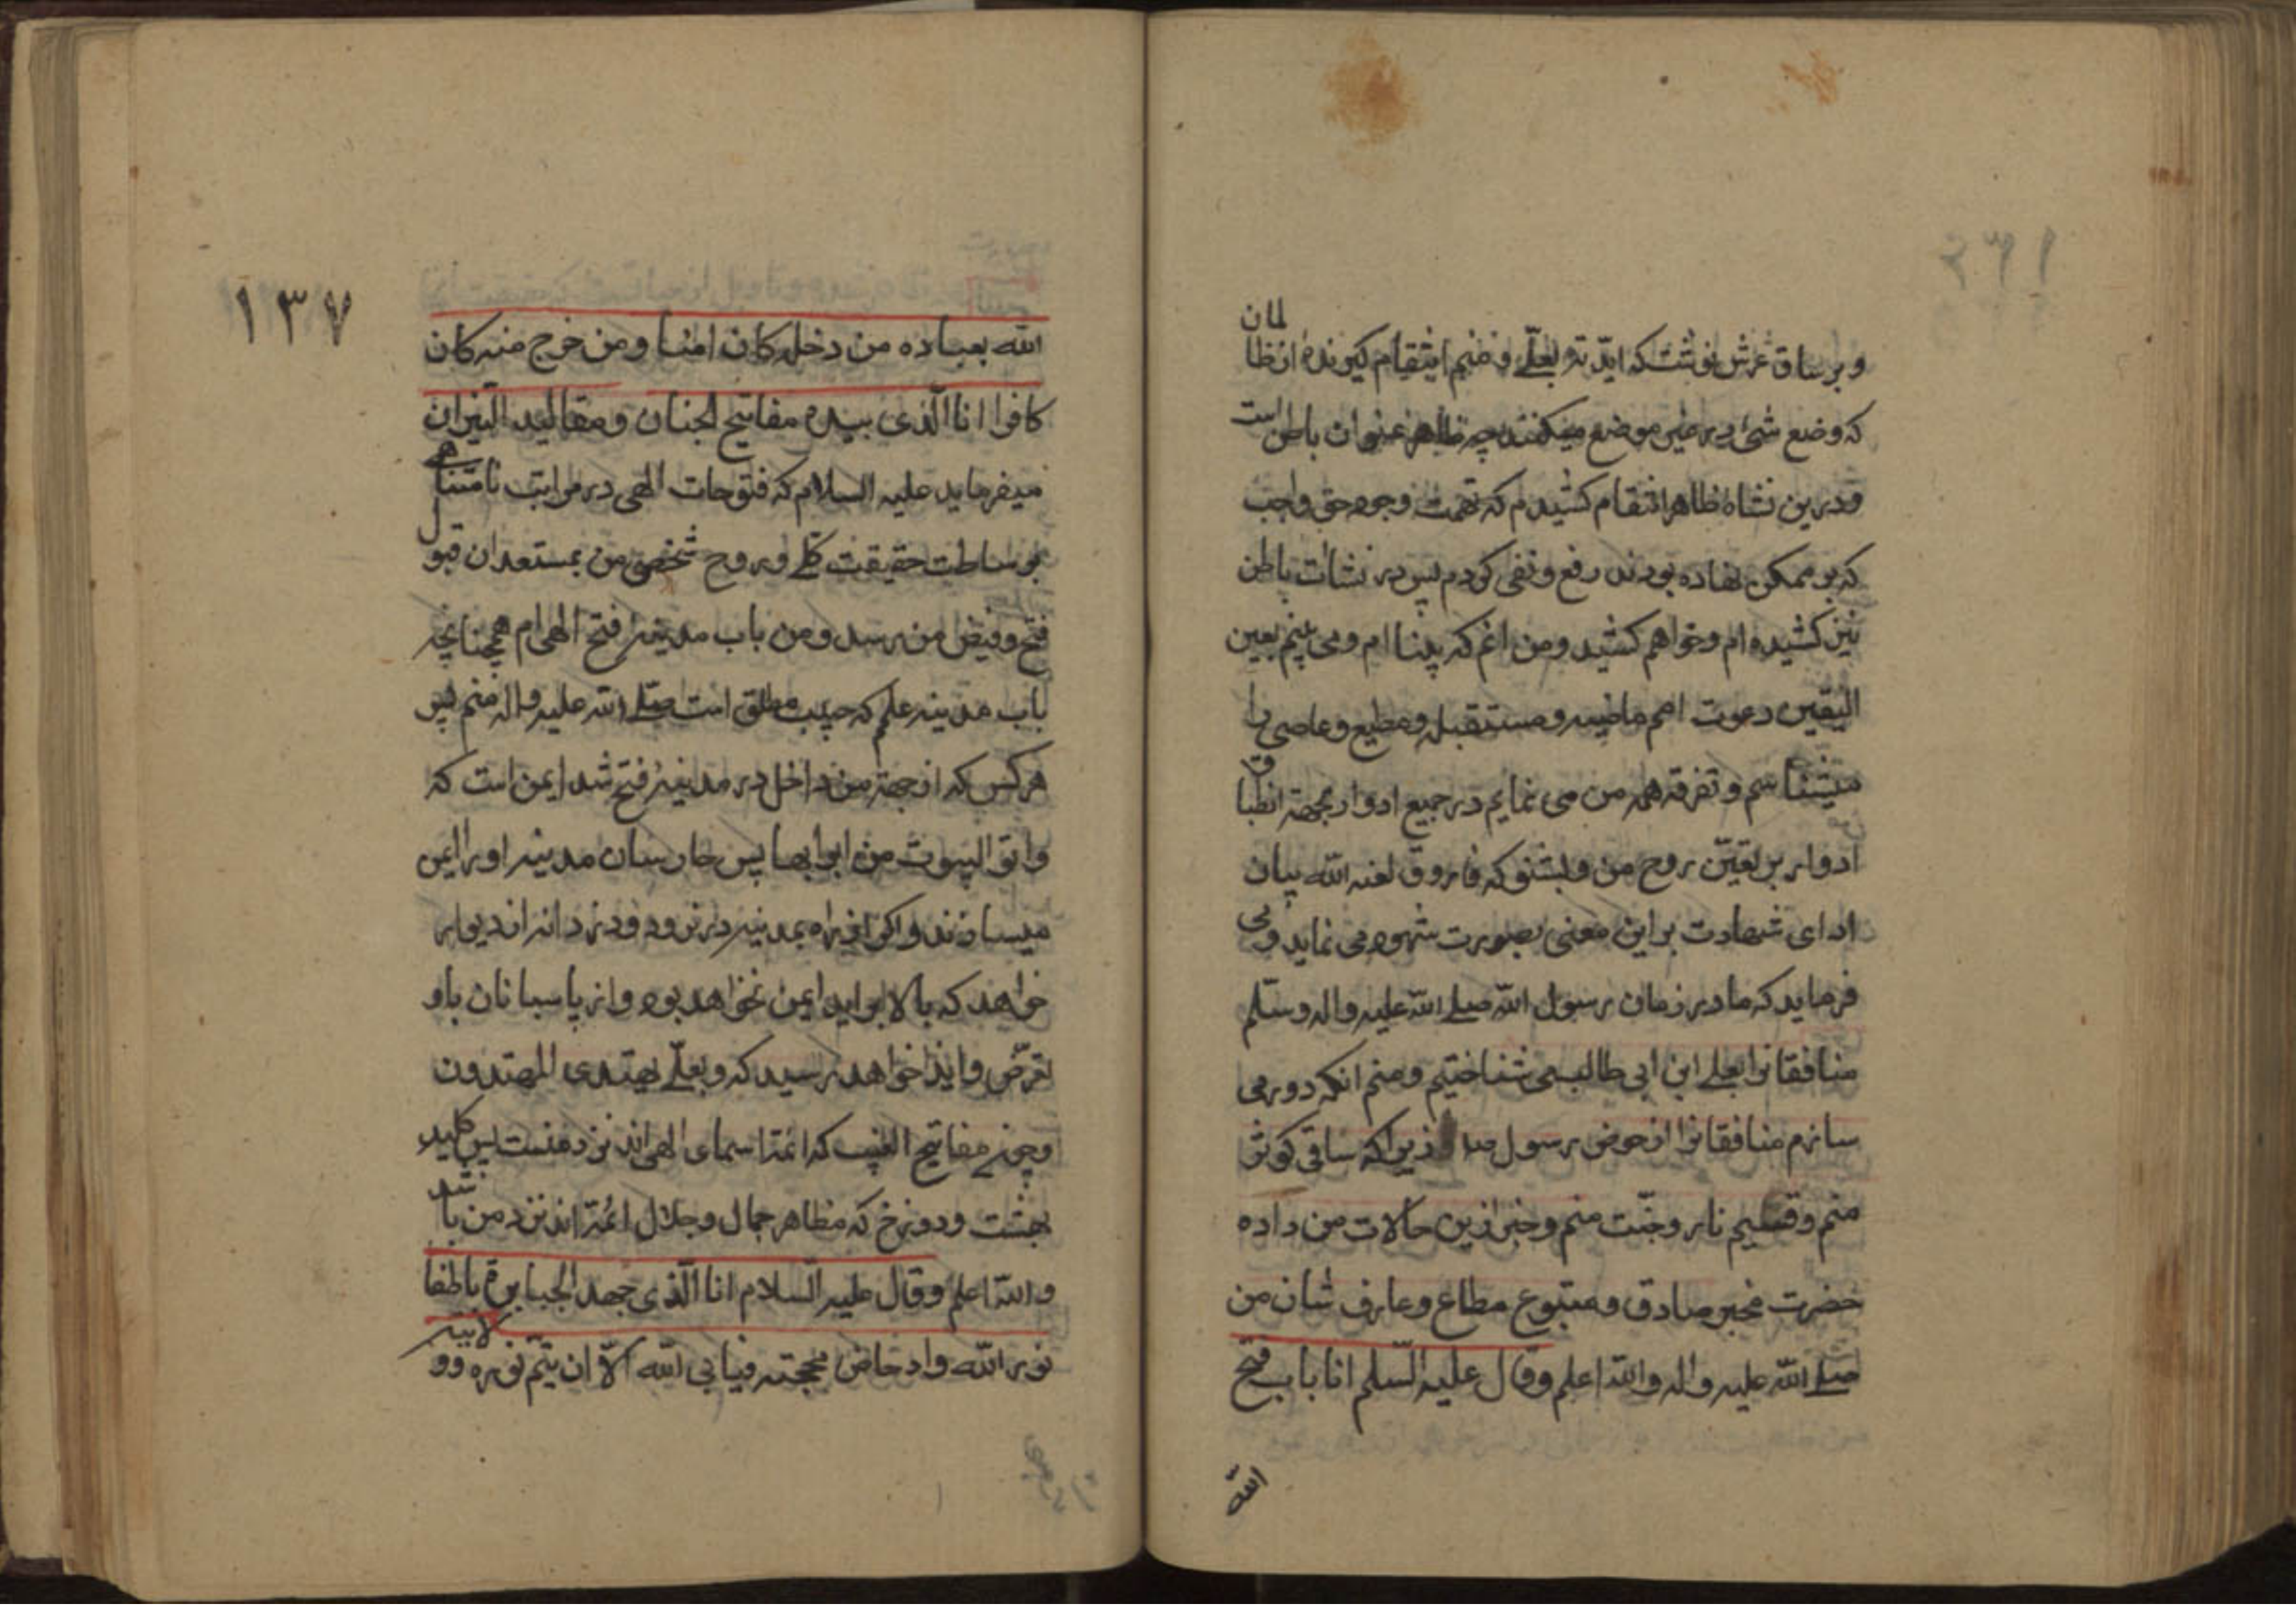 و بر ساق عرش نوشتست که ایّدته بعلیّ و منم انتقام کیرونده از ظالمان
که وضع شئ در غیر موضع میکنند چه ظاهر عنوان باطن است
و درین نشاهٔ ظاهر انتقام کشیدم که تهمت وجود حق واجب
که بر ممکن نهاده بودند رفع و نفی کردم پس در نشات باطن
نیز کشیده ام و خواهم کشید و من انم که بینا ام و می بینم بعین
الیقین دعوت امم ماضیه و مستقبله و مطیع و عاصی را
میشناسم و تفرقه همه من می نمایم در جمیع ادوار بجهة انطباق
ادوار بر تعیّن روح من و بشنو که فاروق لعنه الله بیان
ادای شهادت بر این معنی بصورت شهود می نماید و می
فرماید که ما در زمان رسول الله صلے الله علیه واله وسلّم
منافقانرا بعلے ابن ابی طالب می شناختیم و منم انکه دور می
سازم منافقانرا از حوض رسول خدا زیراکه ساقی کوثر
منم و قسیم نار و جنّت منم و خبر ازین حالات من داده
حضرت مخبر صادق و متبوع مطاع و عارف شان من
صلے الله علیه واله والله اعلم وقال علیه السّلم انا باب فتح
الله
۱۳۷
الله بعباده من دخله کان امنا و من خرج منه کان
کافرا انا الّذی بیده مفاتیح الجنان و مقالید النیران
میفرماید علیه السلام که فتوحات الهی در مراتب نامتناهی
بوساطت حقیقت کلے و روح شخصی من بمستعدان قبول
فتح و فیض من رسد و من باب مدینهٔ فتح الهی ام همچنانچه
باب مدینه علم که حبیب مطلق است صلّے الله علیه واله منم پس
هر کس که از جهة من داخل در مدینهٔ فتح شد ایمن است که
واتو البیوت من ابوابها پس حارسان مدینه او را ایمن
میسازند و اکر از غیر راه بمدینه در رود و دزدانه از دیوار
خواهد که بالا بر اید ایمن نخواهد بود و از پاسبانان باو
تعرّض و ایذا خواهد رسید که و بعلیّ یهتدی المهتدون
و چون مفاتیح الغیب که ائمّهٔ اسمای الهی اند نزد منست پس کلید
بهشت و دوزخ که مظاهر جمال و جلال ائمّه اند نزد من باشد
والله اعلم وقال علیه السلام انا الّذی جهد الجبابرة باطفا
نور الله وادحاض حجّته فیابی الله الّا ان یتمّ نوره وولایته